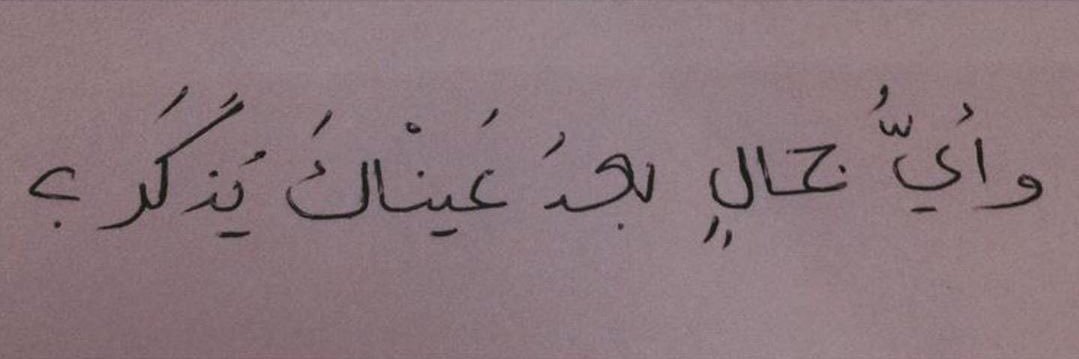 وأَيُّ جمالٍ بعدَ عَينْاكَ يُذكَر ؟